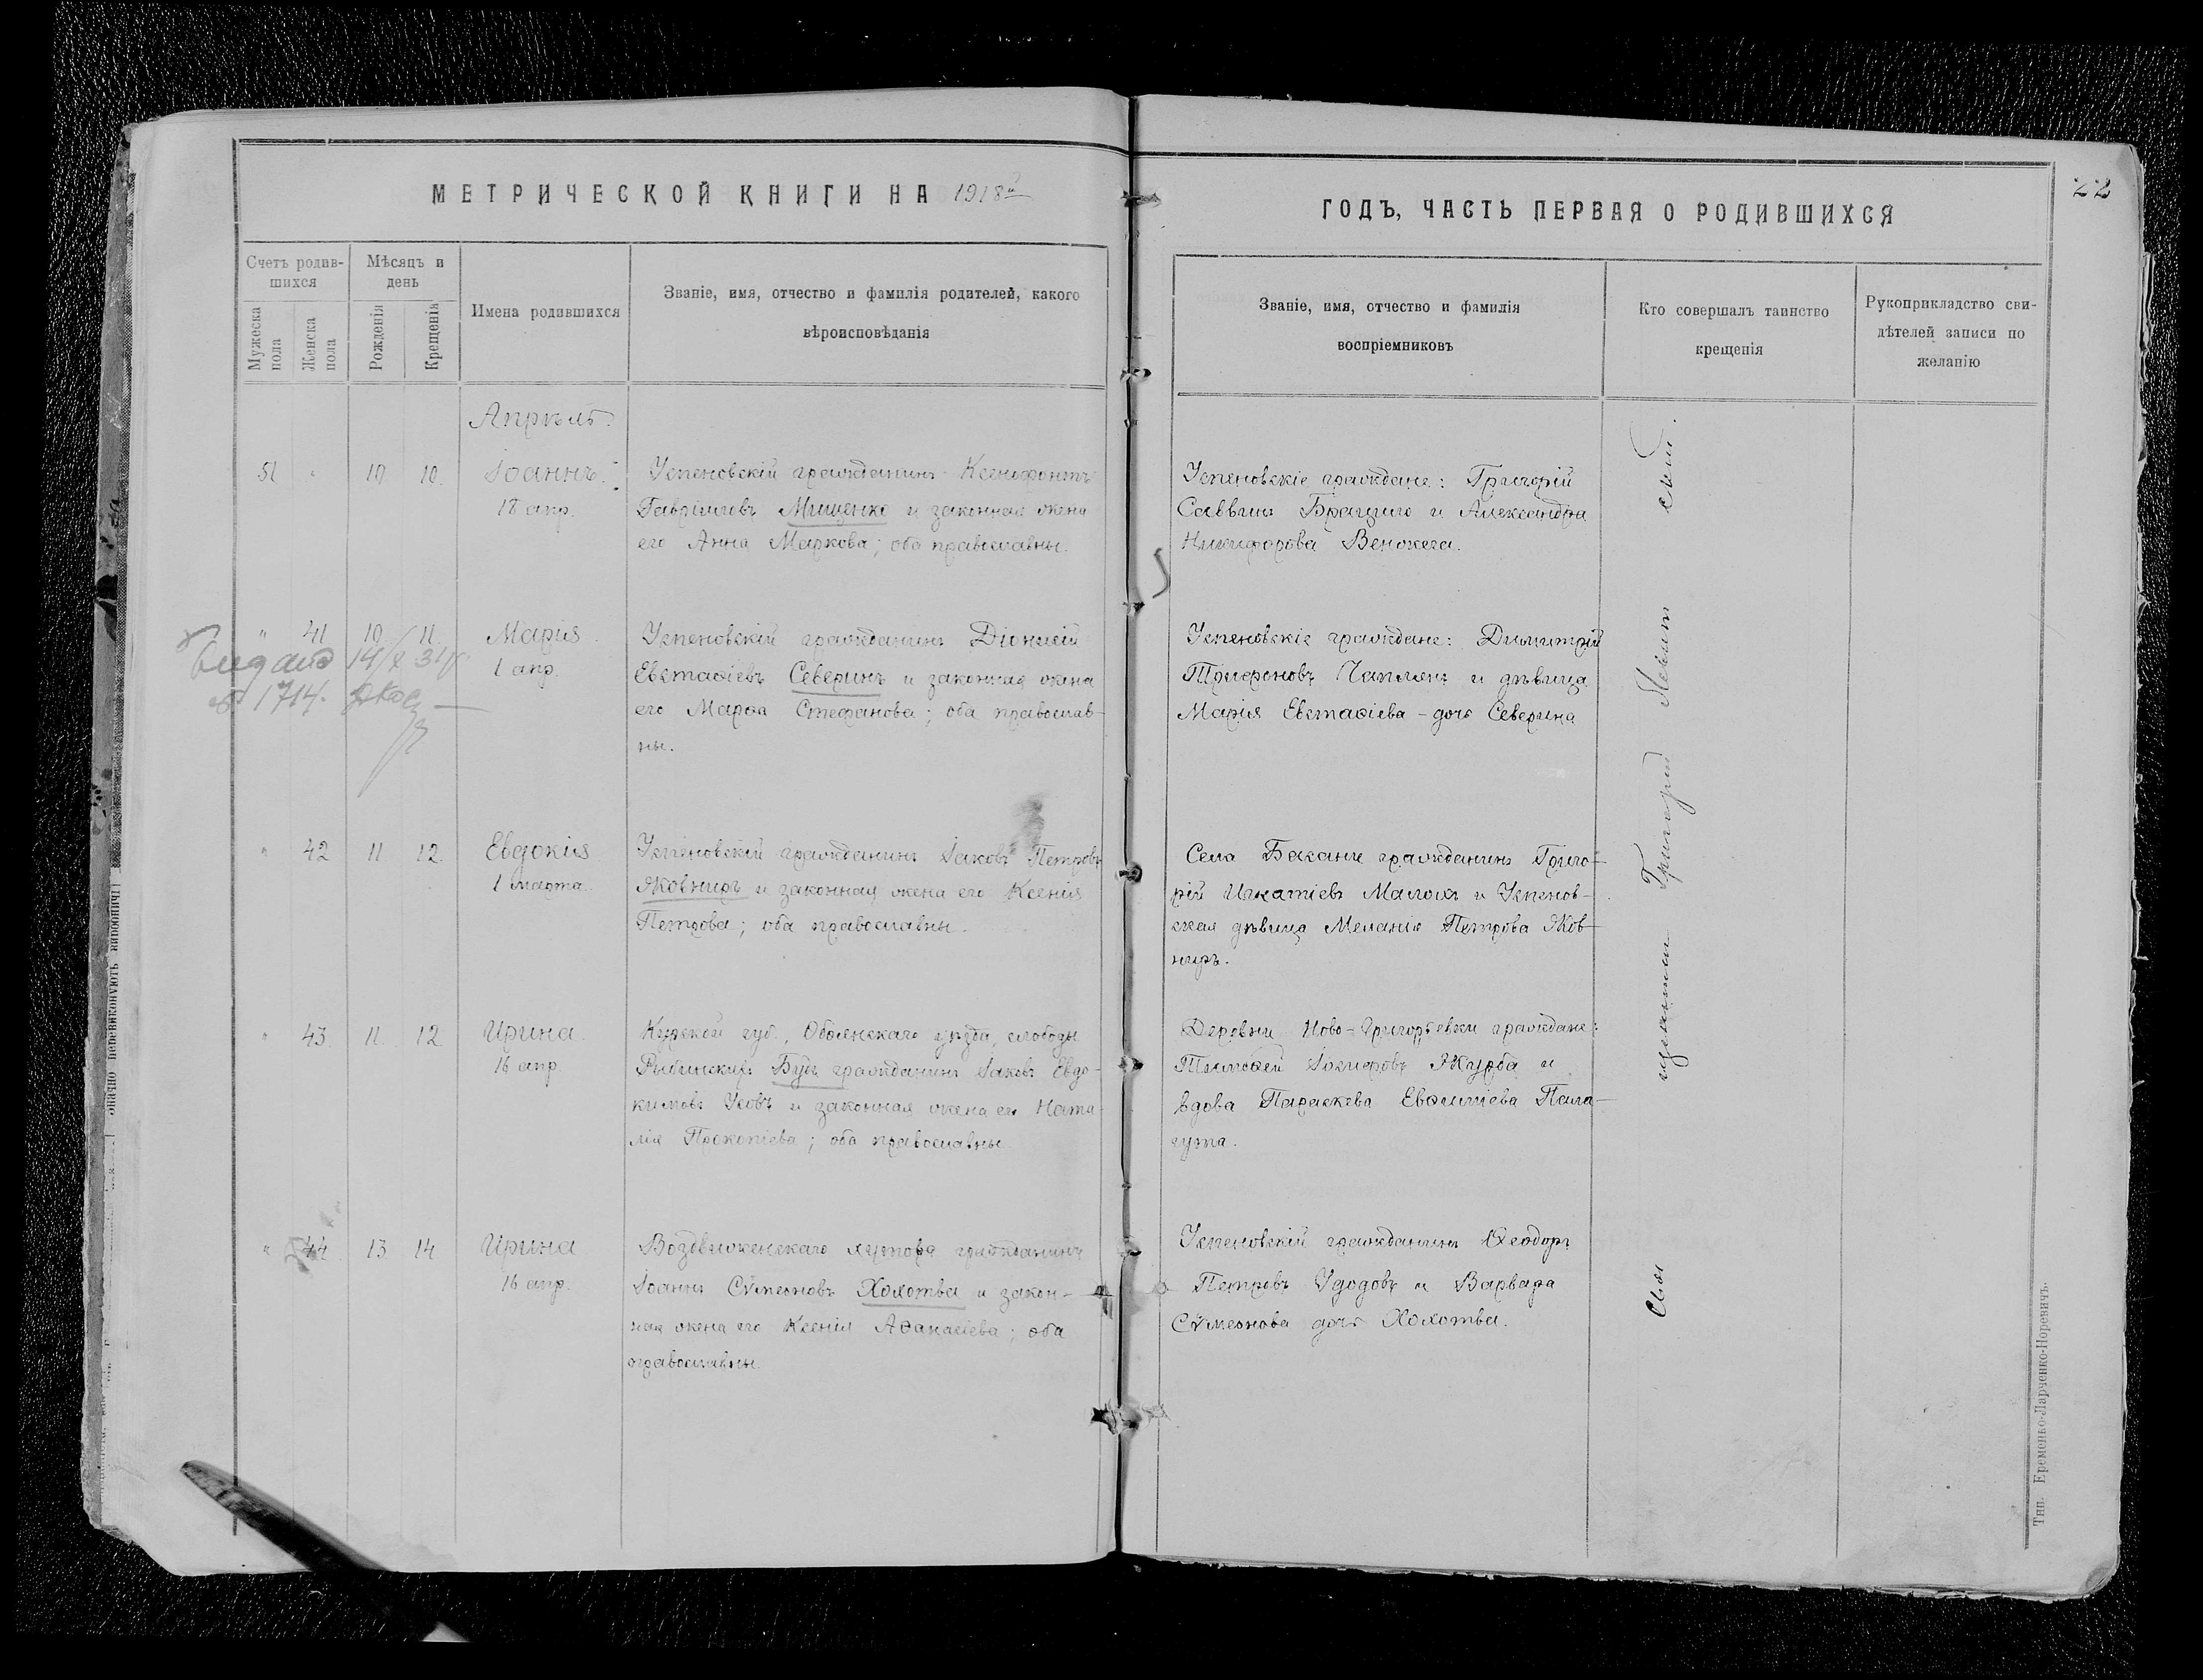 МЕТРИЧЕСКОЙ КНИГИ НА 1918й
Счетъ родив-
шихся
Мѣсяцъ и
день
Мужеска
пола
Женска
пола
Рожденія
Крещенія
Имена родившихся
Званіе, имя, отчество и фамилія родителей, какого
вѣроисповѣданія
Апрѣль.
51 " 10 10. Іоаннъ.
18 апр.
Успеновскій гражданинъ Ксенофонтъ
Гавріиловъ Мищенко и законная жена
его Анна Маркова; оба православны.
" 41 10 11. Марія.
1 апр.
Успеновскій гражданинъ Діонисій
Евстаѳіевъ Северинъ и законная жена
его Марѳа Стефанова; оба православ-
ны.
14/X 34
№ 1714.
" 42 11 12. Евдокія
1 марта.
Успеновскій гражданинъ Іаковъ Петровъ
Яковниръ и законная жена его Ксенія
Петрова; оба православны.
" 43. 11. 12. Ирина.
16 апр.
Курской губ., Обоянскаго уѣзда, слободы
Рыбинскихъ Будъ гражданинъ Іаковъ Евдо-
кимовъ Усовъ и законная жена его Ната-
лія Прокопіева; оба православны.
" 44. 13 14 Ирина
16 апр.
Воздвиженскаго хутора гражданинъ
Іоаннъ Сѵмеоновъ Холотва и закон-
ная жена его Ксенія Аѳанасіева; оба
православны.
22
ГОДЪ, ЧАСТЬ ПЕРВАЯ О РОДИВШИХСЯ
Званіе, имя, отчество и фамилія
воспріемниковъ
Кто совершалъ таинство
крещенія
Рукоприкладство сви-
дѣтелей записи по
желанію
Успеновскіе граждане: Григорій
Саввинъ и Александра
Никифорова
Успеновскіе граждане: Димитрій
Трифоновъ Чаплянъ и дѣвица
Марія Евстаѳіева - дочь Северина
Села гражданинъ Григо-
рій Игнатіевъ и Успенов-
ская дѣвица Меланія Петрова Яков-
ниръ.
Деревни Ново-Григорьевки граждане:
Тимоѳей Іосифовъ Журба и
вдова Параскева Евѳиміева Пала-
гута.
Успеновскій гражданинъ Ѳеодоръ
Петровъ Удодовъ и Варвара
Сѵмеонова дочь Холотва.
Григорій
Тип. Еременко-Ларченко-Норевичъ.